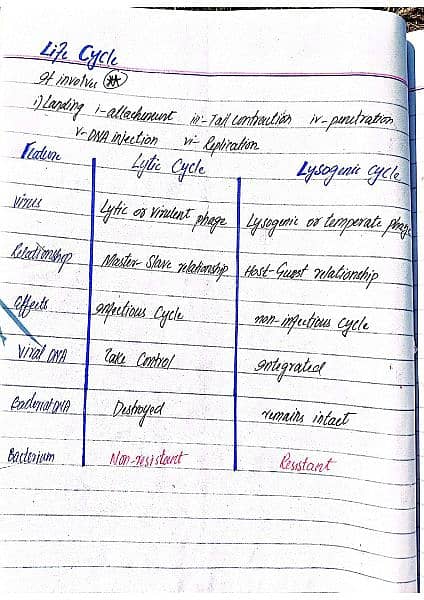 Life Cycle
It involve **
i) Landing i-attachment iii-Tail contraction iv-penetration
v-DNA injection vi- Replication
Feature Lytic Cycle Lysogenic cycle
Virus Lytic or virulent phage Lysogenic or temperate phage
Relationship Master-Slave relationship Host-Guest relationship
Effects infectious Cycle non-infectious cycle
Viral DNA Take Control integrated
Bacterial DNA Destroyed remains intact
Bacterium Non-resistant Resistant